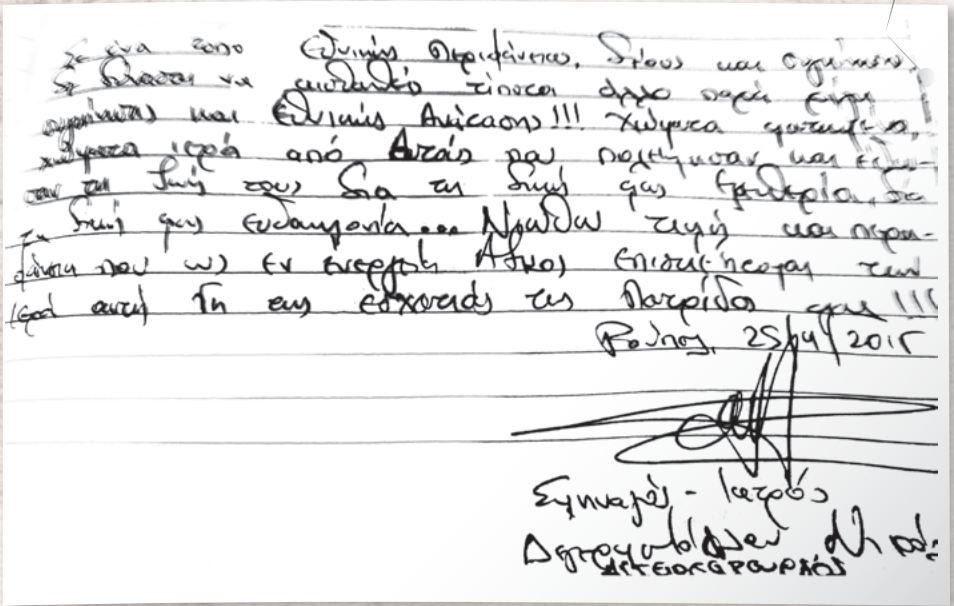 Σε ένα τόπο Εθνικής Περιφάνειας, δέους και συγκίνησης,
δε δύναται να αισθανθώ τίποτα άλλο παρά ρίγη
συγκίνησης και Εθνικής Ανάτασης!!! Χώματα ματωμένα,
χώματα ιερά από Αυτούς που πολέμησαν και έδω-
σαν τη ζωή τους δια τη δική μας Ελευθερία, δια
τη δική μας ευδαιμονία... Νιώθω τιμή και περη-
φάνεια που ως εν ενεργεία επισκέπτομαι την
ιερά αυτή Γη της εσχατιάς της Πατρίδος μας!!!
25/04/2015
Σμηναγός - Ιατρός